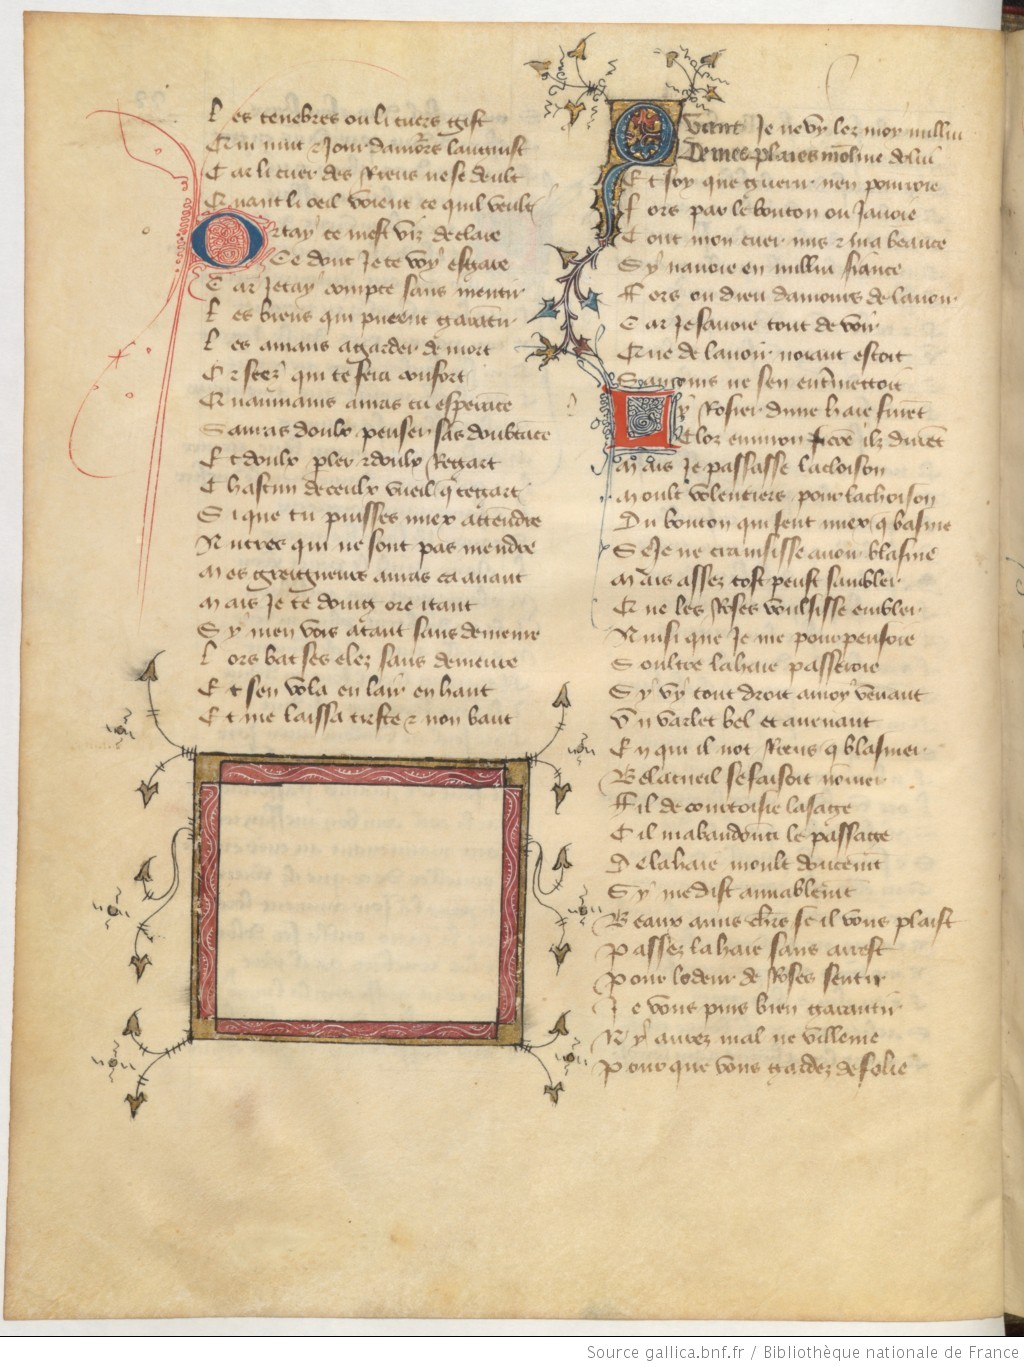 Les tenebres ou li cuers gist
Qui nuit & jour damors languist
Car li cuer des Riens ne se deult
Quant li oeil voient ce quil veult
Or tay ce mest vis declaie
Ce dont Je te vy esgaie
Car Je tay compte sans mentir
Les biens qui pueent garantir
Les amans & garder de mort
Or scez qui te fera confort
Quaumains auras tu esperace
Sauras doulx penser sas doubtace
Et doulx pler & doulx Regart
Chascun de ceulx vueil q te gart
Si que tu puisses miex attendre
Autres qui ne sont pas mendre
Mes greigneurs auras ca auant
Mais Je te doing ore itant
Sy men vois atant sans demeure
Lors bat ses elez sans demeure
Et sen vola en lair en haut
Et me laissa triste & non baut
Quant Je ne vy lez moy nullui
De mes plaies moline dolui
Et soy que guerir nen pouroie
Fors par le bouton ou Jauoie
Tout mon cuer mis & ma beance
Sy nauoie en nullui fiance
Fors ou dieu damours de lauoir
Car Je sauoie tout de voir
Que de lauoir noiant estoit
Samours ne sen entmettoit
Ly Rosier dune haie furet
Clos enuiron sicoe ilz duret
Mais Je passasse la cloison
Moult volentiers pour lachoison
Du bouton qui sent miex q basme
Se Je ne crainsisse auoir blasme
Mais assez tost peust sambler
Que les Roses voulsisse embler
Ainsi que Je me pourpensoie
Soultre la haie passeroie
Sy vy tout droit amoy venant
Vn varlet bel et auenant
En qui il not Riens q blasmer
Bel acueil se faisoit nomer
Fil de courtoisie la sage
Cil mabandonna le passage
De la haie moult doucemt
Sy me dist amiablemt
Beaux amis chrs se il vous plaist
Passez la haie sans arrest
Pour lodeur de Roses sentir
Je vous puis bien garantir
Ny aurez mal ne villenie
Pour que vous gardez de folie
Source gallica.bnf.fr / Bibliothèque nationale de France